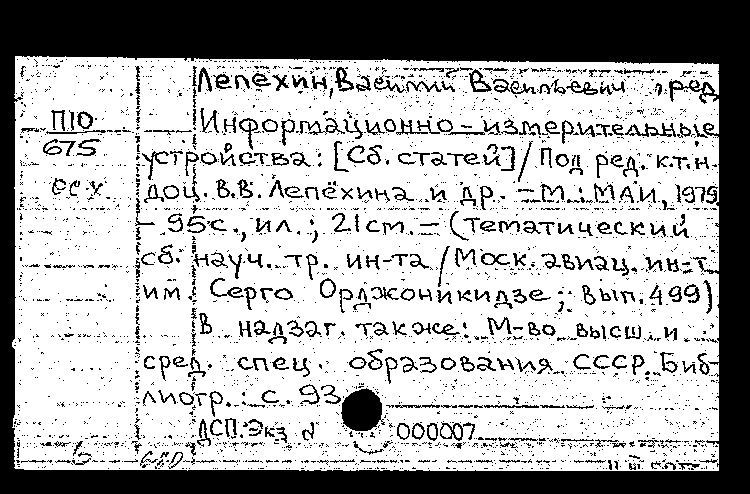 Лепёхин, Василий Васильевич, ред
П10
675
Информационно-измерительные
устройства: [Сб. статей] / Под ред. к.т.н.
доц. В.В. Лепёхина и др. - М.: МАИ, 1979
- 95с., ил.; 21см. - (Тематический
сб. науч. тр. ин-та / Моск. авиац. ин-т
им. Серго Орджоникидзе; вып. 499)
В надзаг. также: М-во высш. и
сред. спец. образования СССР. Биб-
лиогр.: с. 93
ДСП. Экз N 000007